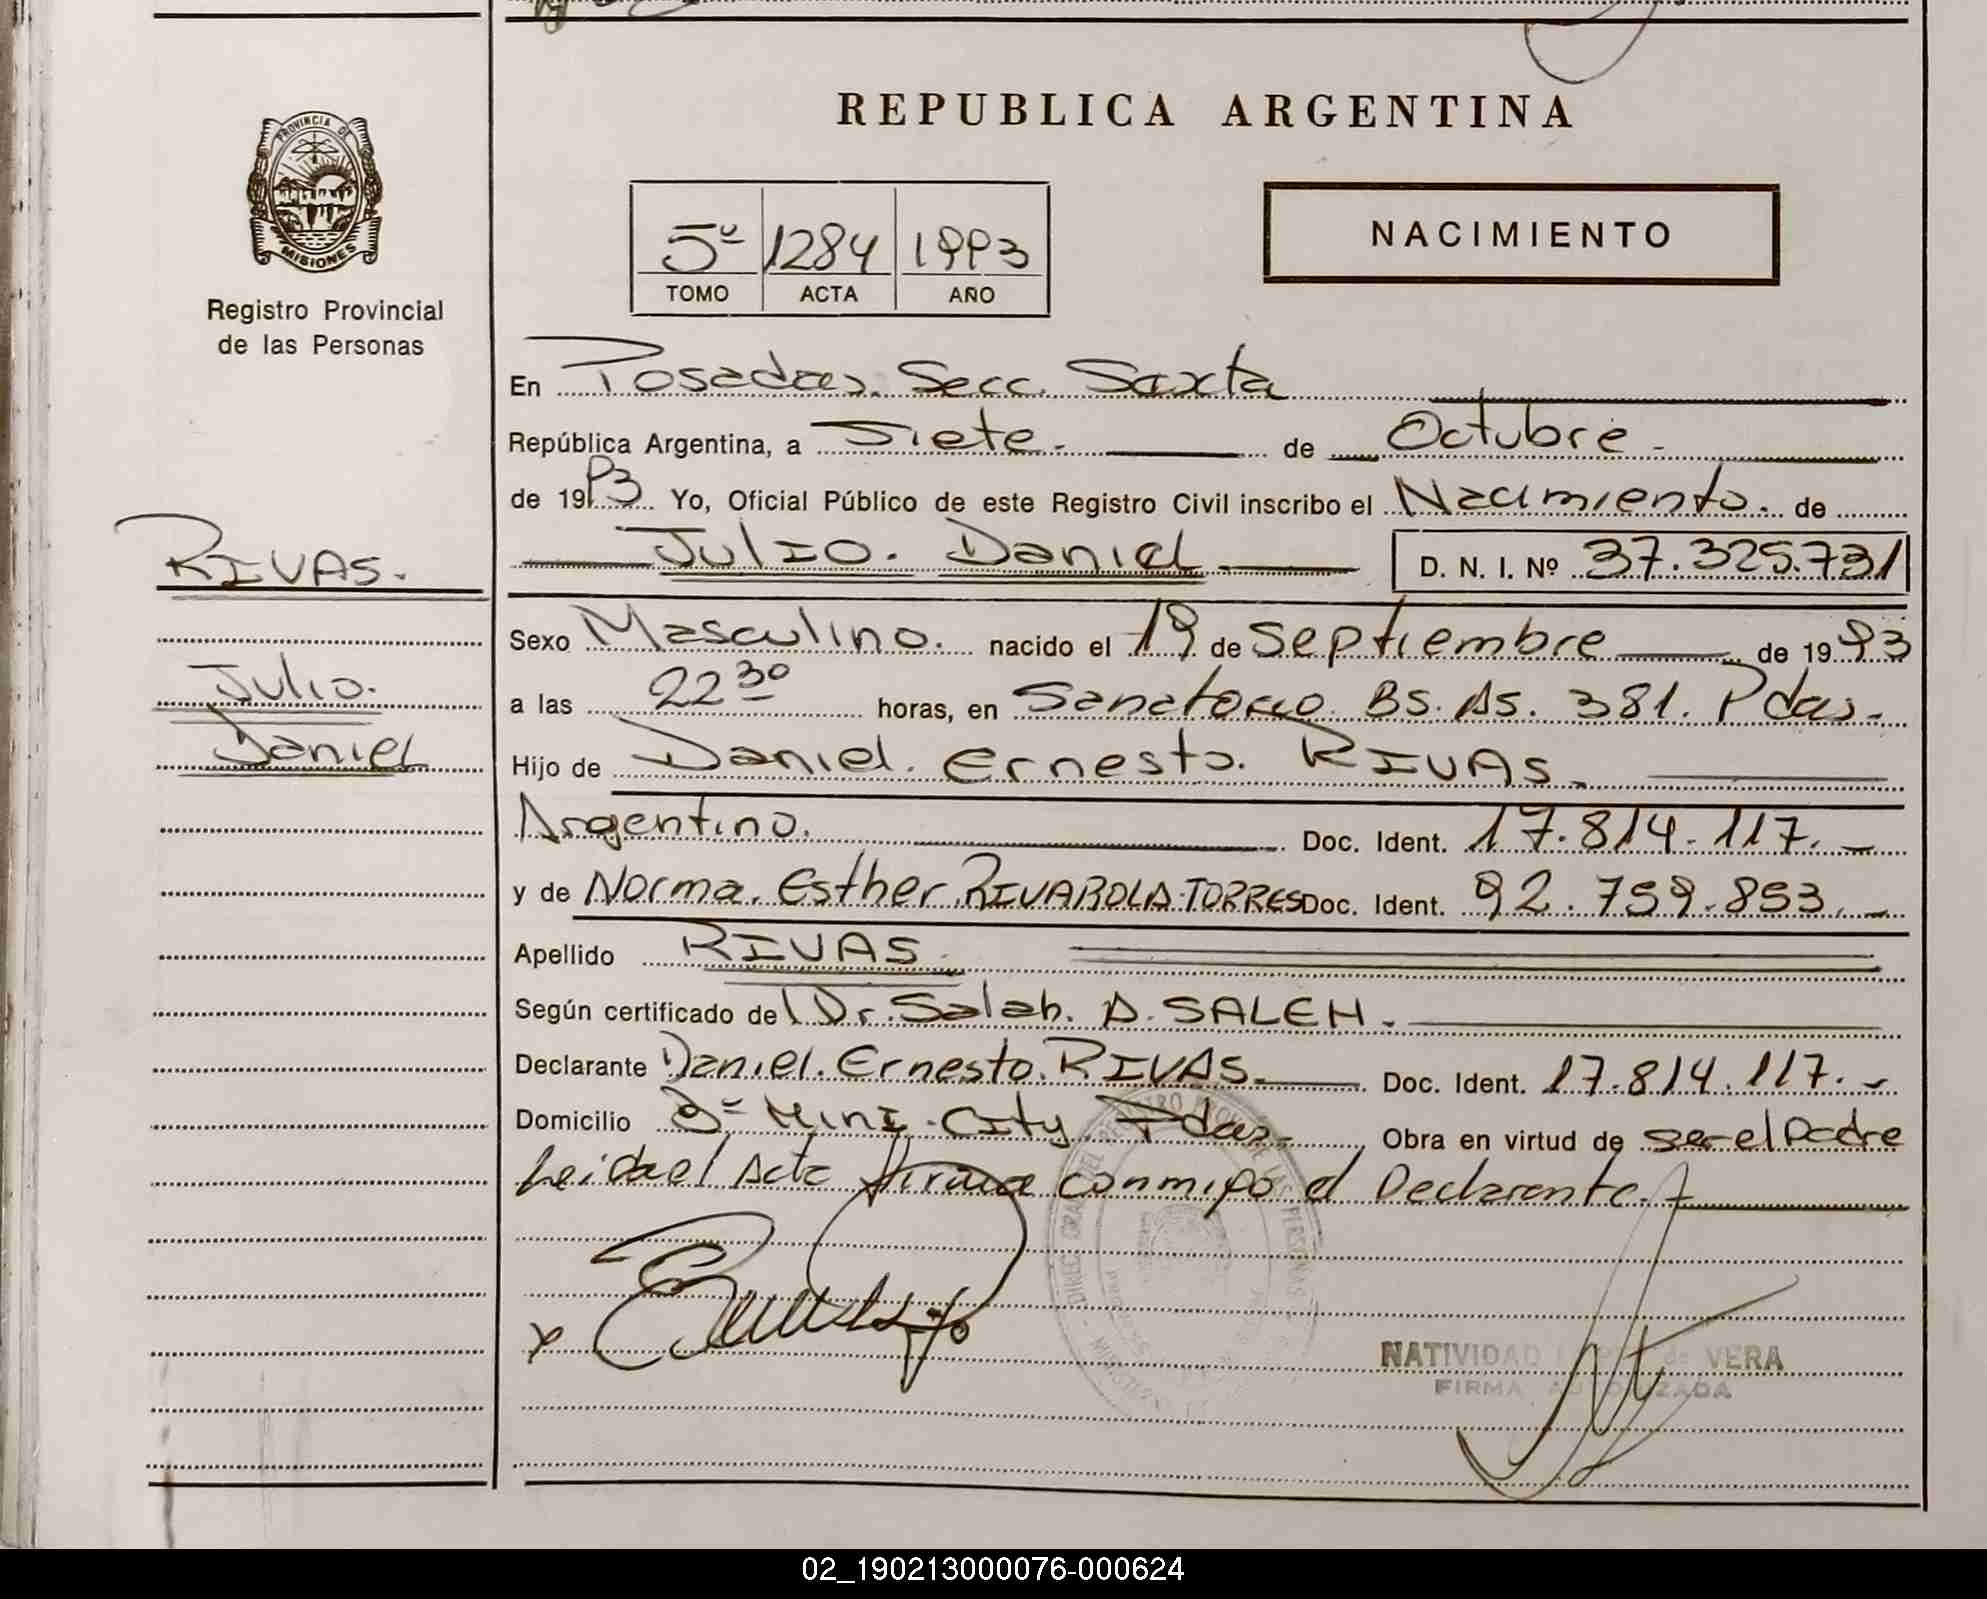 REPUBLICA ARGENTINA
PROVINCIA DE
MISIONES
Registro Provincial
de las Personas
5º 1284 1993
TOMO ACTA AÑO
NACIMIENTO
En Posadas. Secc. Sexta
República Argentina, a Siete. de Octubre.
de 1993. Yo, Oficial Público de este Registro Civil inscribo el Nacimiento. de
RIVAS.
Julio. Daniel D. N. I. Nº 37.325.731
Sexo Masculino. nacido el 19 de Septiembre de 1993
Julio.
a las 22 30 horas, en Sanatorio Bs. As. 381. Pdas.
Daniel
Hijo de Daniel. Ernesto. RIVAS.
Argentino. Doc. Ident. 17.814.117.
y de Norma. Esther. RIVAROLA-TORRES Doc. Ident. 92.759.853.
Apellido RIVAS.
Según certificado del Dr. Salab. A. SALEH.
Declarante Daniel. Ernesto. RIVAS. Doc. Ident. 17.814.117.
Domicilio Mini-City. Pdas. Obra en virtud de ser el Padre
Leida el Acta firma conmigo el Declarante.
NATIVIDAD de VERA
FIRMA AUTORIZADA
02_190213000076-000624